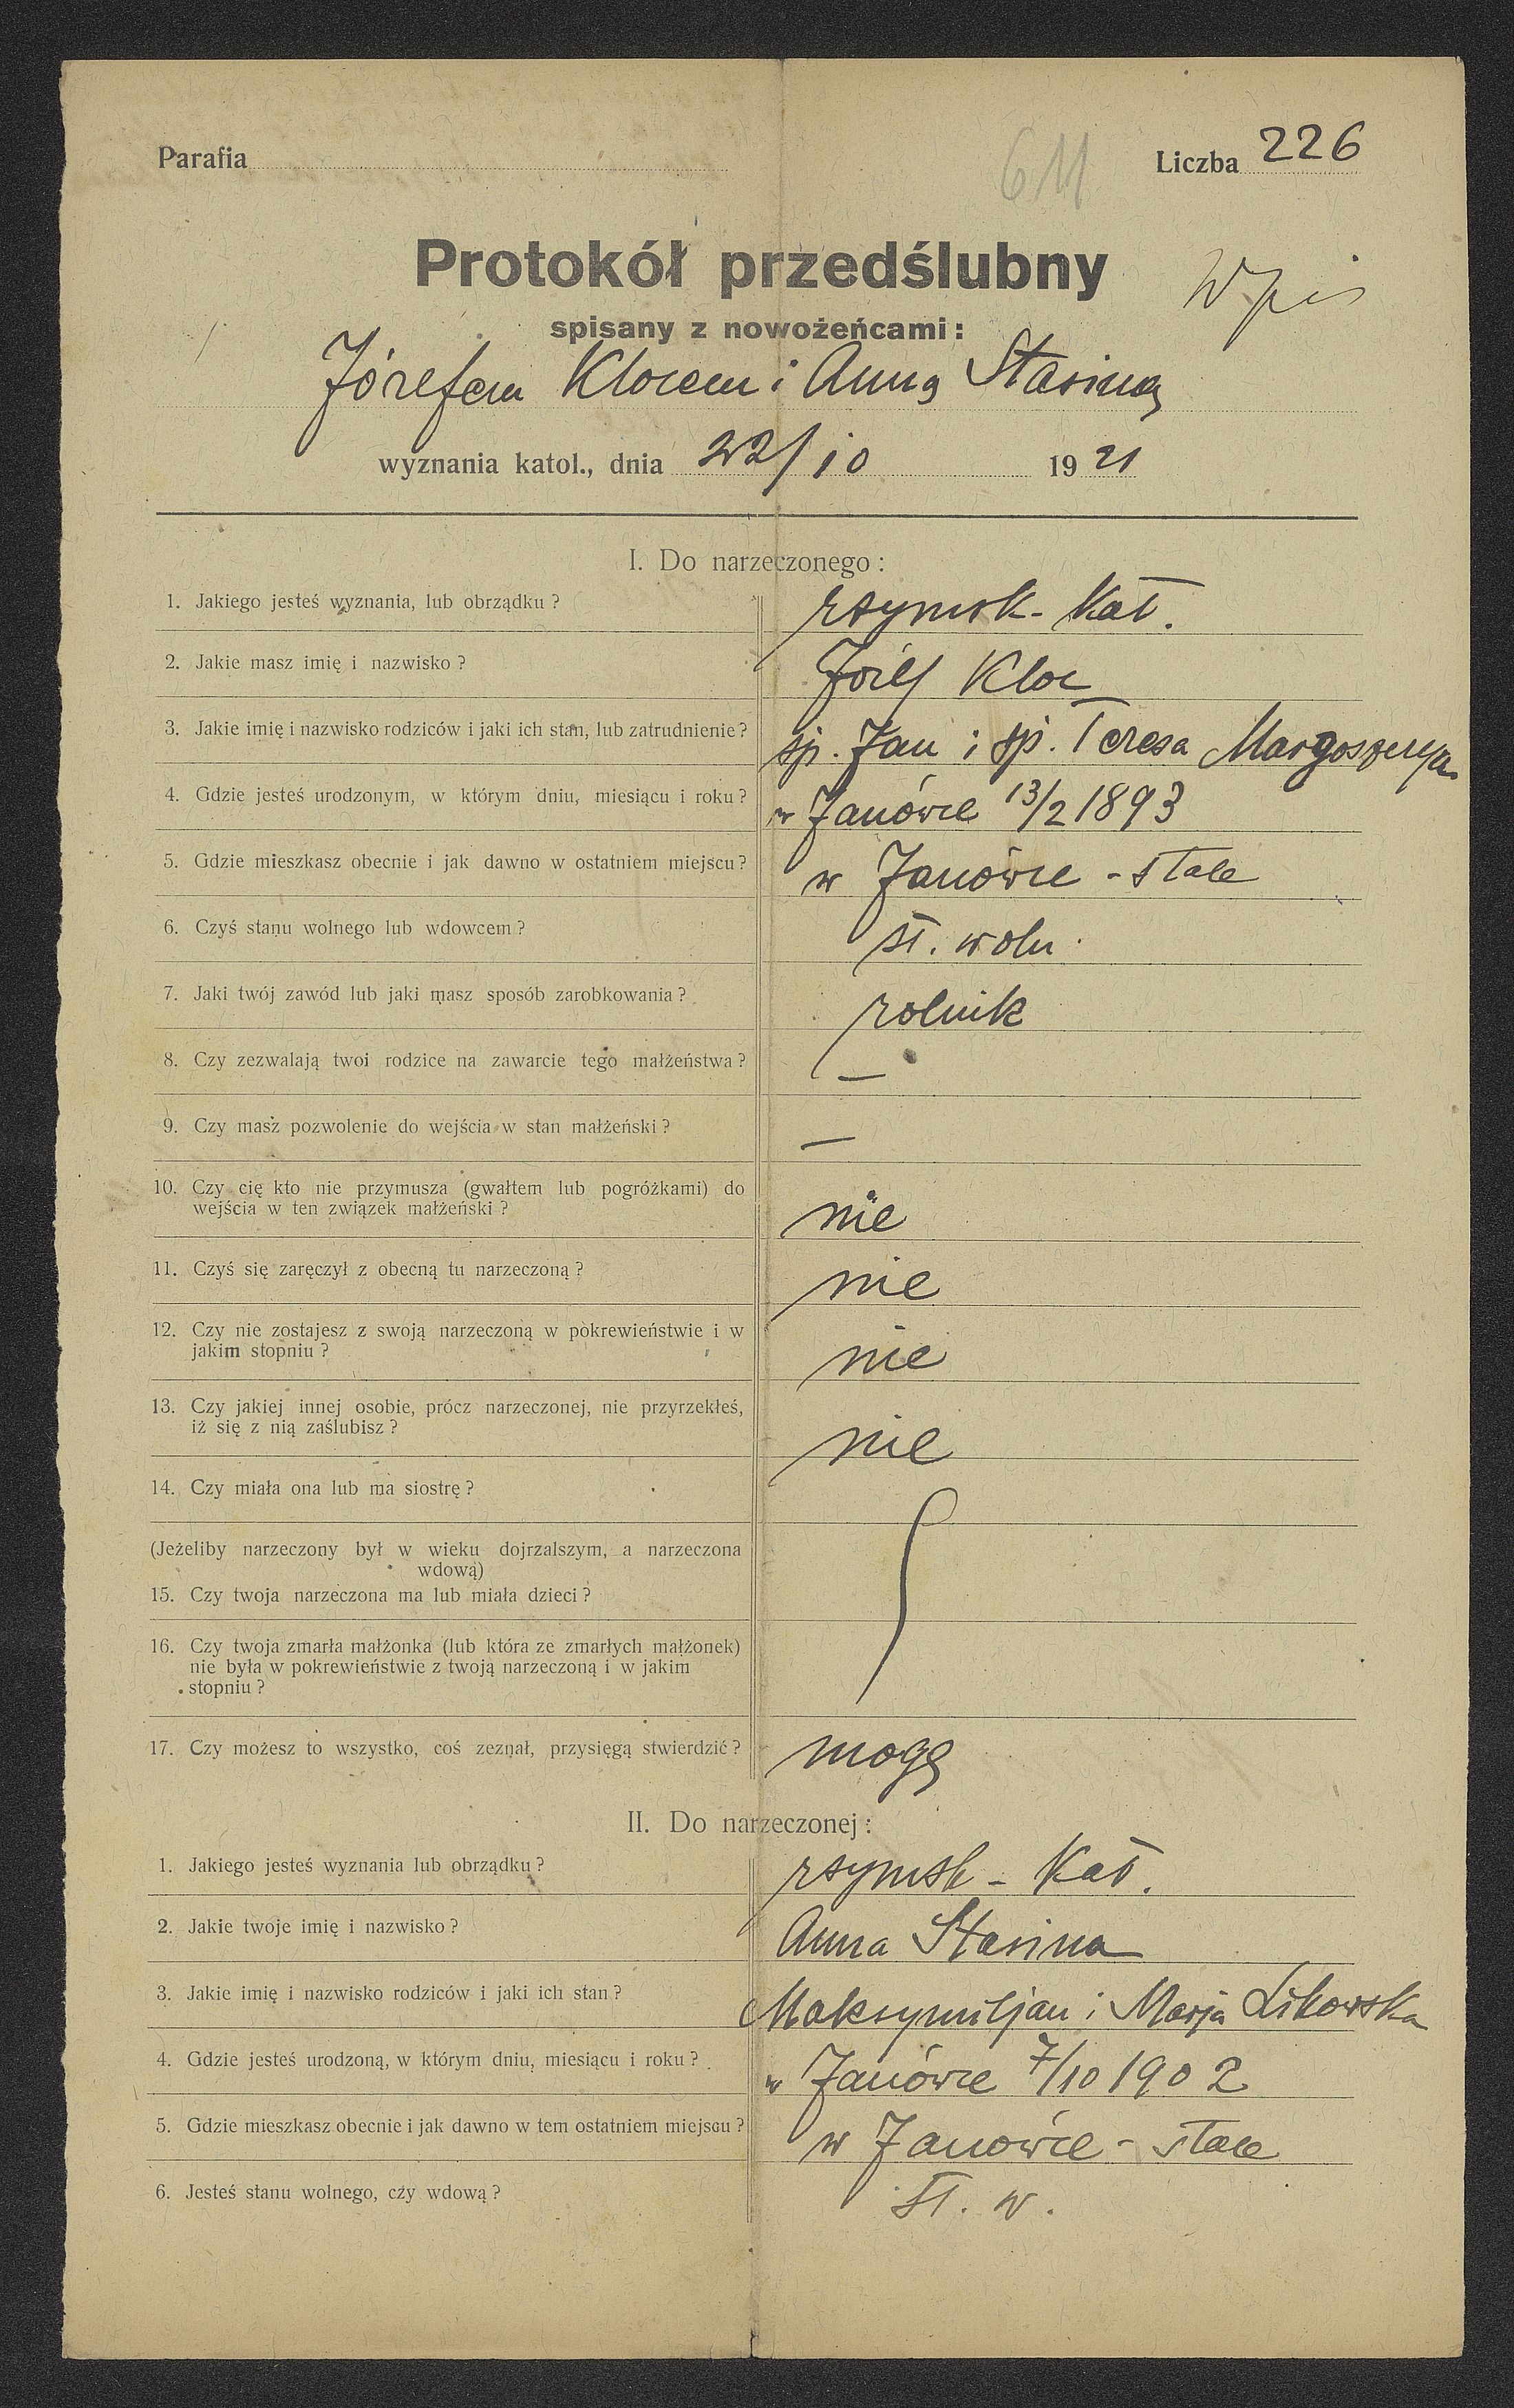 Parafia Liczba 226
611
Protokół przedślubny
Wpis
spisany z nowożeńcami:
Józefem Klocem i Anną Stasiną
wyznania katol., dnia 22/10 1921
I. Do narzeczonego:
1. Jakiego jesteś wyznania, lub obrządku? rzymsk-kat.
2. Jakie masz imię i nazwisko? Józef Kloc
3. Jakie imię i nazwisko rodziców i jaki ich stan, lub zatrudnienie? śp. Jan i śp. Teresa
4. Gdzie jesteś urodzonym, w którym dniu, miesiącu i roku? w Janówce 13/2 1893
5. Gdzie mieszkasz obecnie i jak dawno w ostatniem miejscu? w Janówce - stale
6. Czyś stanu wolnego lub wdowcem? st. woln.
7. Jaki twój zawód lub jaki masz sposób zarobkowania? rolnik
8. Czy zezwalają twoi rodzice na zawarcie tego małżeństwa? —
9. Czy masz pozwolenie do wejścia w stan małżeński? —
10. Czy cię kto nie przymusza (gwałtem lub pogróżkami) do
wejścia w ten związek małżeński? nie
11. Czyś się zaręczył z obecną tu narzeczoną? nie
12. Czy nie zostajesz z swoją narzeczoną w pokrewieństwie i w
jakim stopniu? nie
13. Czy jakiej innej osobie, prócz narzeczonej, nie przyrzekłeś,
iż się z nią zaślubisz? nie
14. Czy miała ona lub ma siostrę?
(Jeżeliby narzeczony był w wieku dojrzalszym, a narzeczona
wdową)
15. Czy twoja narzeczona ma lub miała dzieci?
16. Czy twoja zmarła małżonka (lub która ze zmarłych małżonek)
nie była w pokrewieństwie z twoją narzeczoną i w jakim
stopniu?
17. Czy możesz to wszystko, coś zeznał, przysięgą stwierdzić? mogę
II. Do narzeczonej:
1. Jakiego jesteś wyznania lub obrządku? rzymsk-kat.
2. Jakie twoje imię i nazwisko? Anna Stasina
3. Jakie imię i nazwisko rodziców i jaki ich stan? Maksymiljan i Marja Likowska
4. Gdzie jesteś urodzoną, w którym dniu, miesiącu i roku? w Janówce 7/10 1902
5. Gdzie mieszkasz obecnie i jak dawno w tem ostatniem miejscu? w Janówce - stale
6. Jesteś stanu wolnego, czy wdową? st. w.